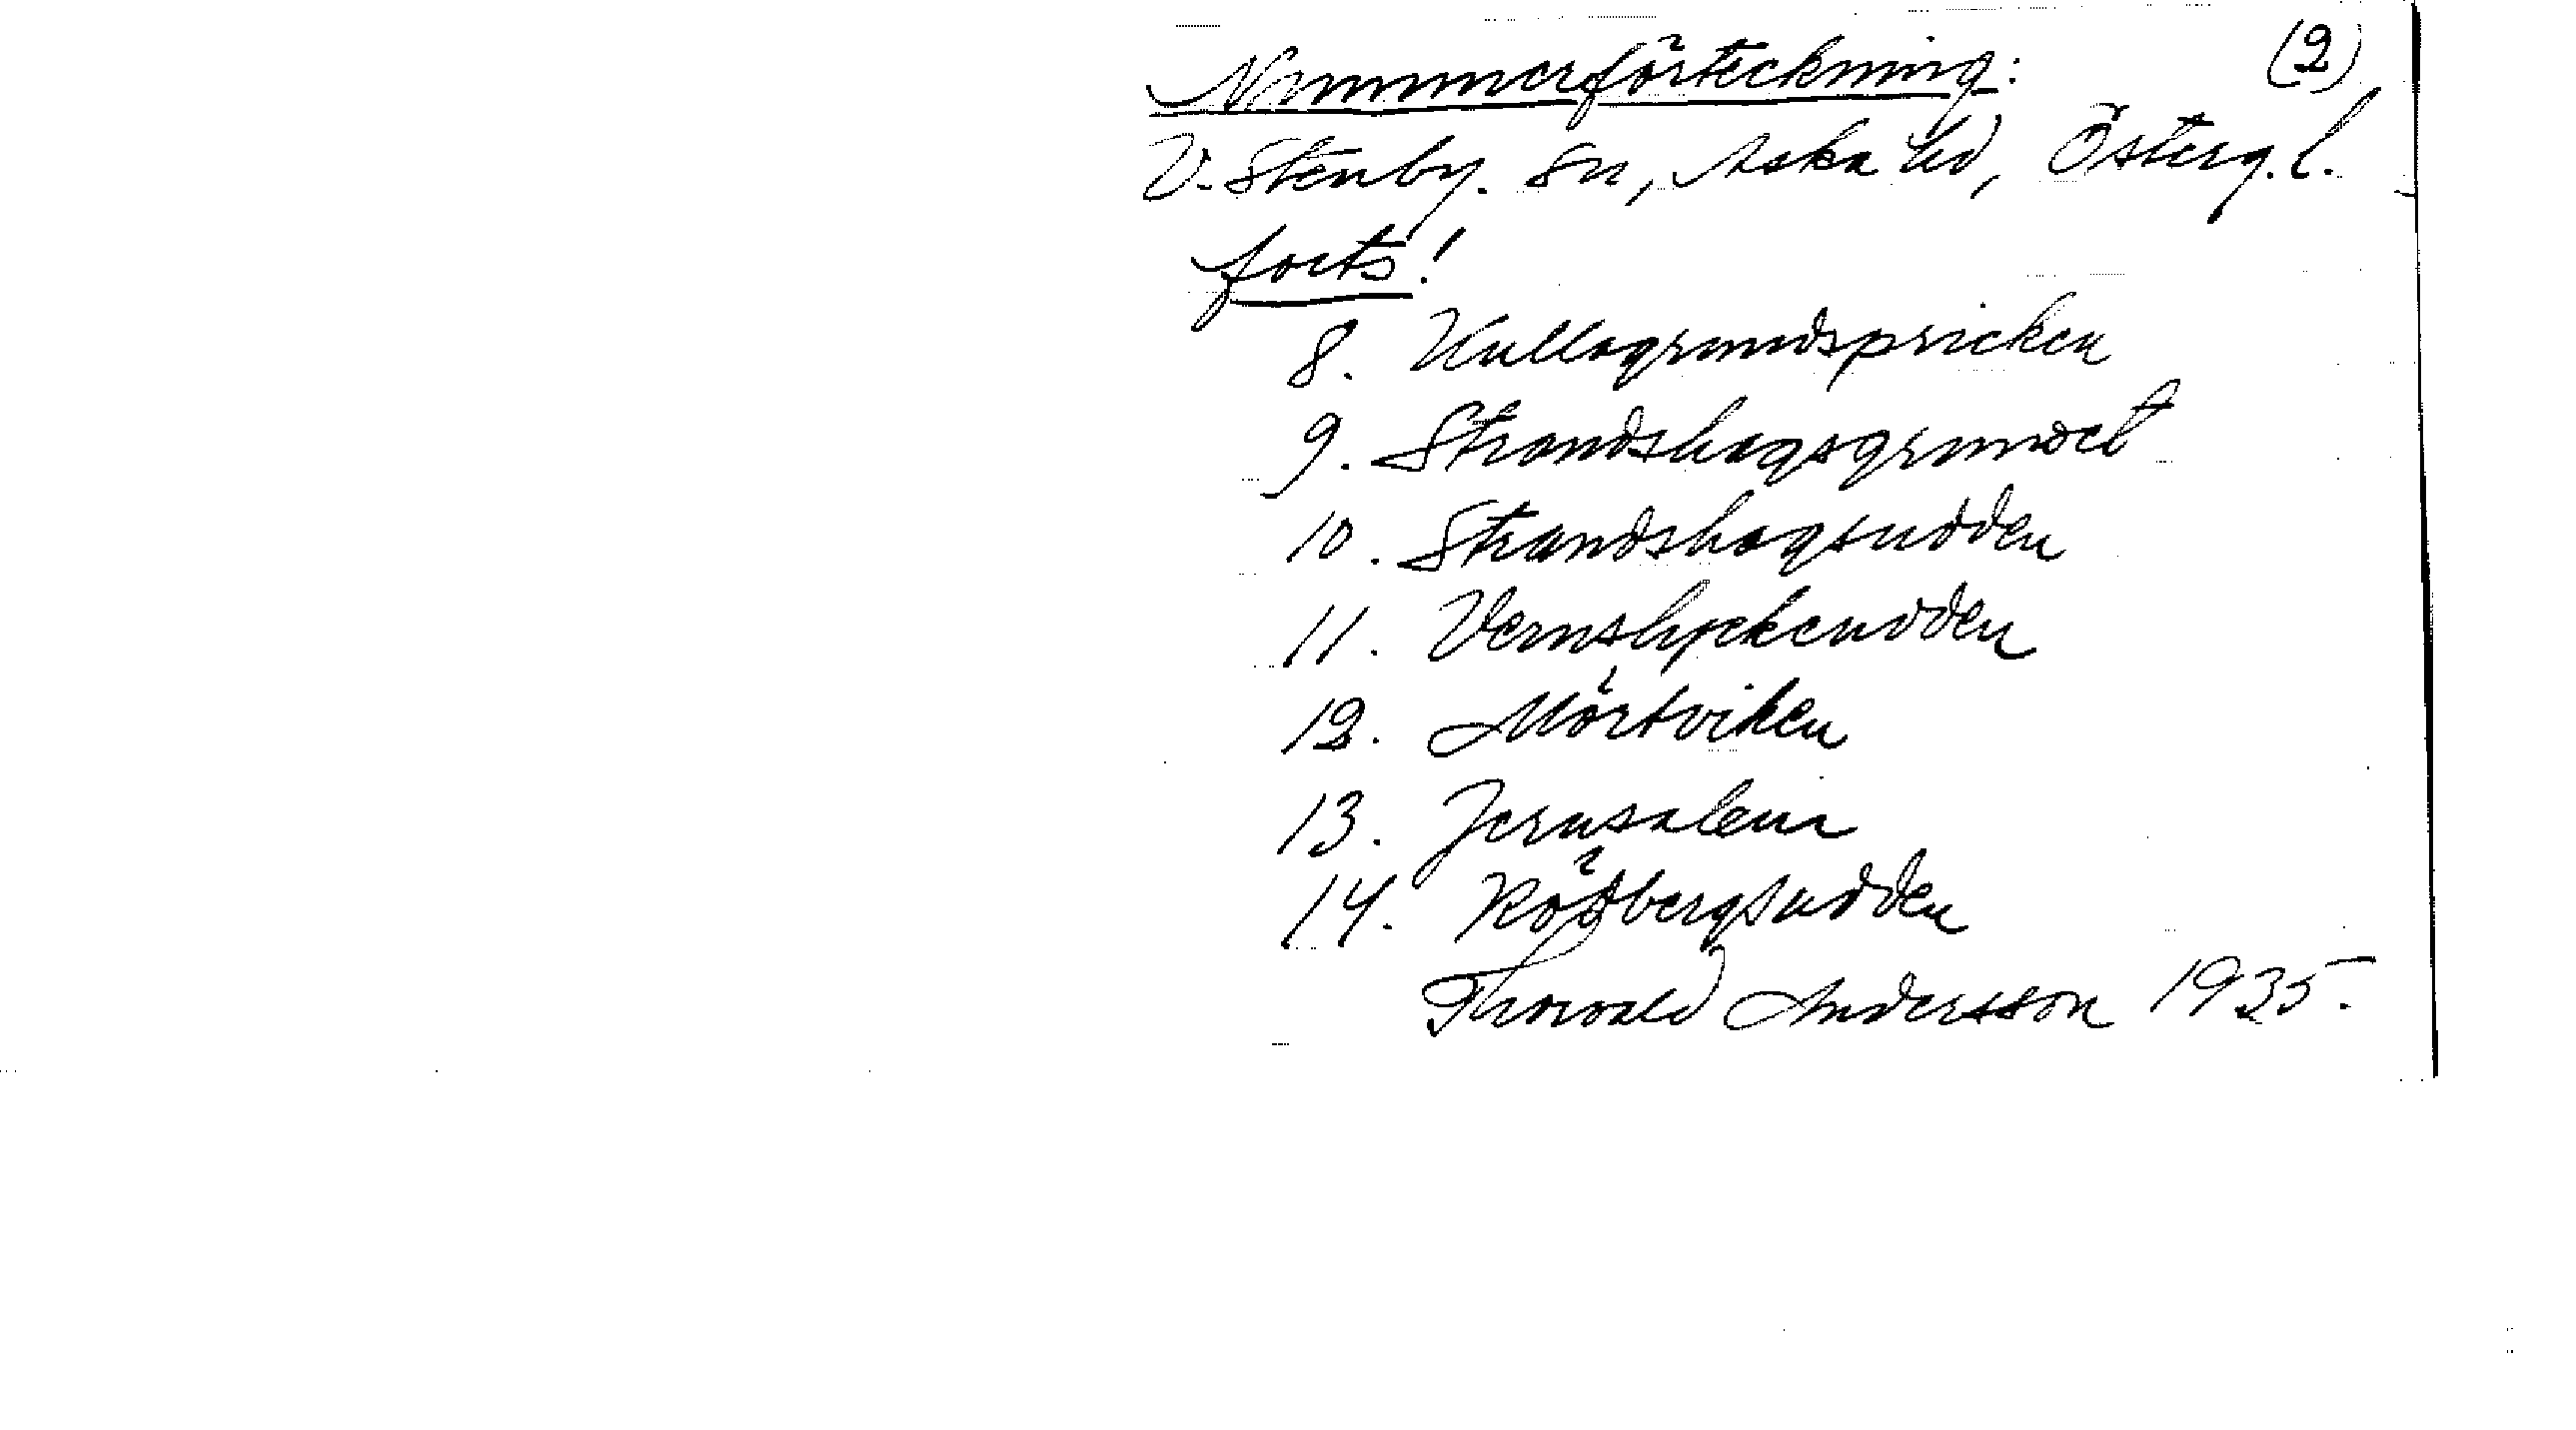 Nummerförteckning: (2)
V. Stenby. sn, Aska hd, Österg. l.
forts!
8. Kullagrundspricken
9. Strandshagsgrundet
10. Strandshagsudden
11. Vernslyckeudden
12. Mörtviken
13. Jerusalem
14. Rödbergsudden
Thorvald Andersson 1935.